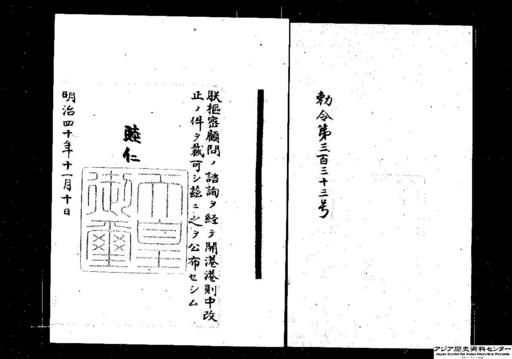 勅令第三百三十三号
朕枢密顧問ノ諮詢ヲ経テ開港港則中改
止ノ件ヲ裁可シ茲ニ之ヲ公布セシム
睦仁
天皇
御璽
明治四十年十一月十日
アジア歴史資料センター
Japan Center for Asian Historical Records